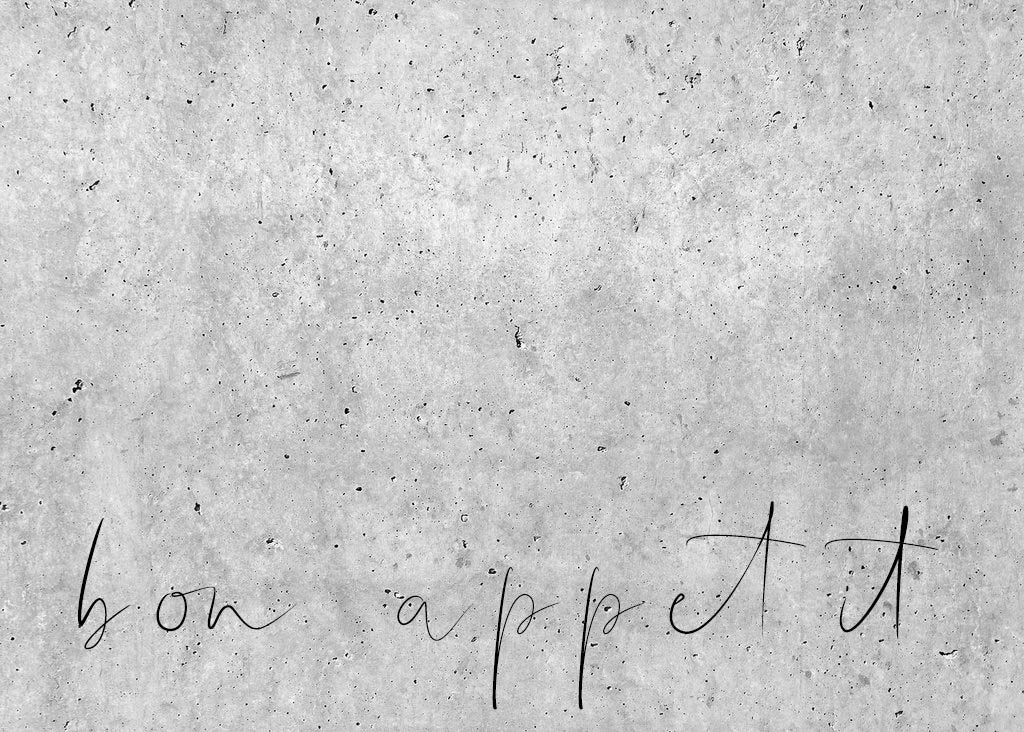 bon appetit